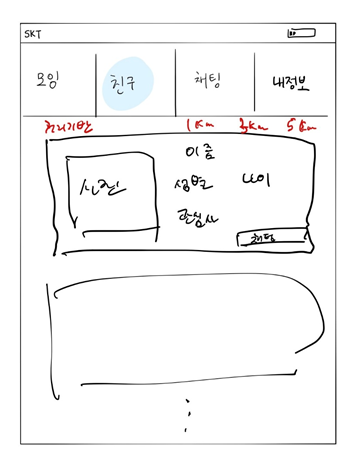 SKT
모임 친구 채팅 내정보
거리기반 1km 3km 5km
이름
사진 성별 나이
관심사
채팅